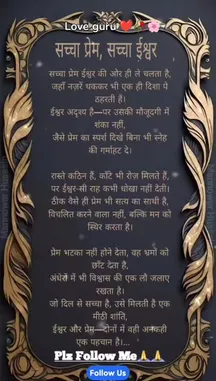 Love guru ❤️🌹🌸
सच्चा प्रेम, सच्चा ईश्वर
सच्चा प्रेम ईश्वर की ओर ही ले चलता है,
जहाँ नज़रें थककर भी एक ही दिशा पे
ठहरती हैं।
ईश्वर अदृश्य है—पर उसकी मौजूदगी में
शंका नहीं,
जैसे प्रेम का स्पर्श दिखे बिना भी स्नेह
की गर्माहट दे।
रास्ते कठिन हैं, काँटे भी रोज़ मिलते हैं,
पर ईश्वर-सी राह कभी धोखा नहीं देती।
ठीक वैसे ही प्रेम भी सत्य का साथी है,
विचलित करने वाला नहीं, बल्कि मन को
स्थिर करता है।
प्रेम भटका नहीं होने देता, वह भ्रमों को
छाँट देता है,
अंधेरे में भी विश्वास की एक लौ जलाए
रखता है।
जो दिल से सच्चा है, उसे मिलती है एक
मीठी शांति,
ईश्वर और प्रेम—दोनों में वही अनकही
एक पहचान है।...
Plz Follow Me🙏🙏
Follow Us